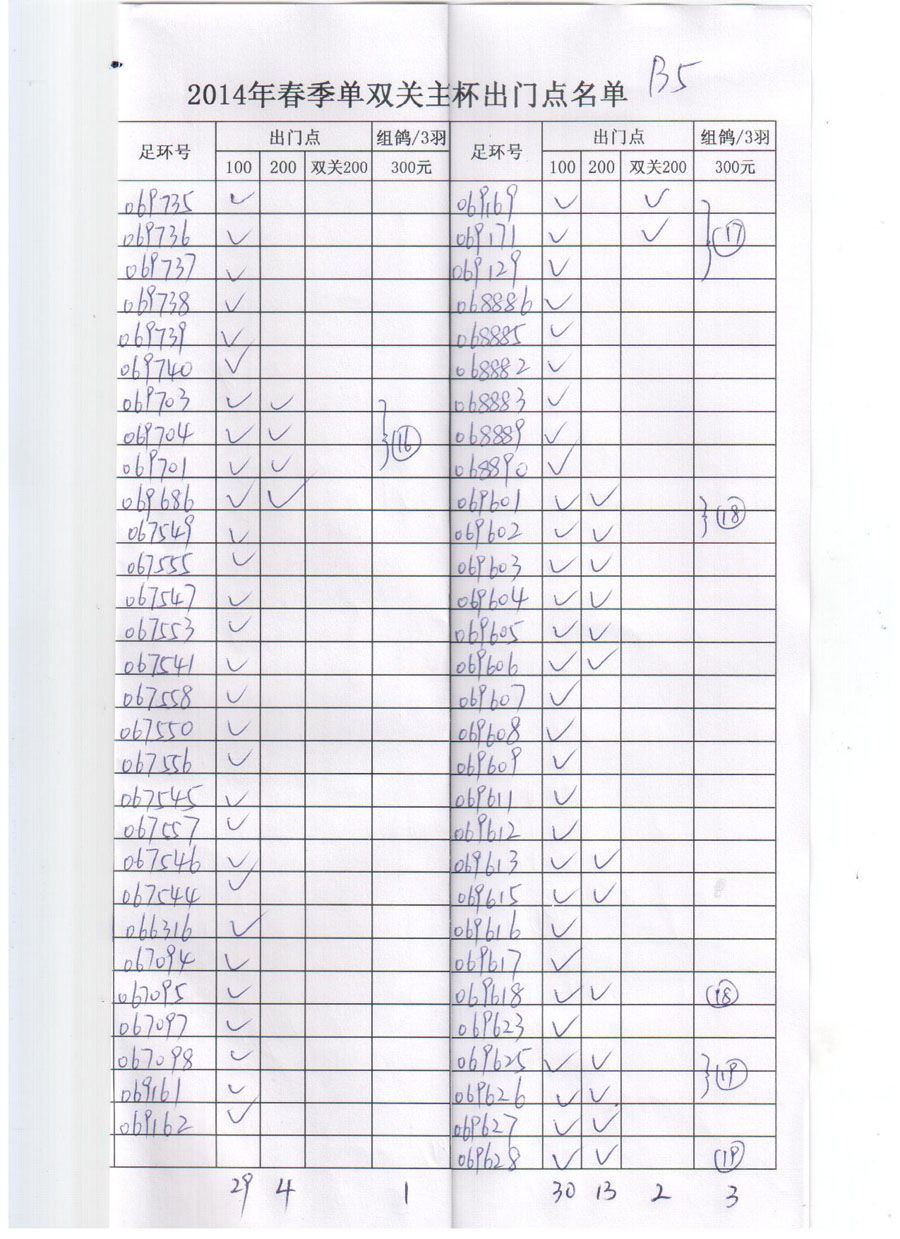 2014年春季单双关主杯出门点名单 B5
足环号 出门点 组鸽/3羽 足环号 出门点 组鸽/3羽
100 200 双关200 300元 100 200 双关200 300元
069735 ✓ 069169 ✓ ✓
069736 ✓ 069171 ✓ ✓ ⑰
069737 ✓ 069129 ✓
069738 ✓ 068886 ✓
069739 ✓ 068885 ✓
069740 ✓ 068882 ✓
069703 ✓ ✓ 068883 ✓
069704 ✓ ✓ ⑯ 068889 ✓
069701 ✓ ✓ 068890 ✓
069686 ✓ ✓ 069601 ✓ ✓ ⑱
067549 ✓ 069602 ✓ ✓
067555 ✓ 069603 ✓ ✓
067547 ✓ 069604 ✓ ✓
067553 ✓ 069605 ✓ ✓
067541 ✓ 069606 ✓ ✓
067558 ✓ 069607 ✓
067550 ✓ 069608 ✓
067556 ✓ 069609 ✓
067545 ✓ 069611 ✓
067557 ✓ 069612 ✓
067546 ✓ 069613 ✓ ✓
067544 ✓ 069615 ✓ ✓
066316 ✓ 069616 ✓
067094 ✓ 069617 ✓
067095 ✓ 069618 ✓ ✓ ⑱
067097 ✓ 069623 ✓
067098 ✓ 069625 ✓ ✓ ⑲
069161 ✓ 069626 ✓ ✓
069162 ✓ 069627 ✓ ✓
069628 ✓ ✓ ⑲
29 4 1 30 13 2 3